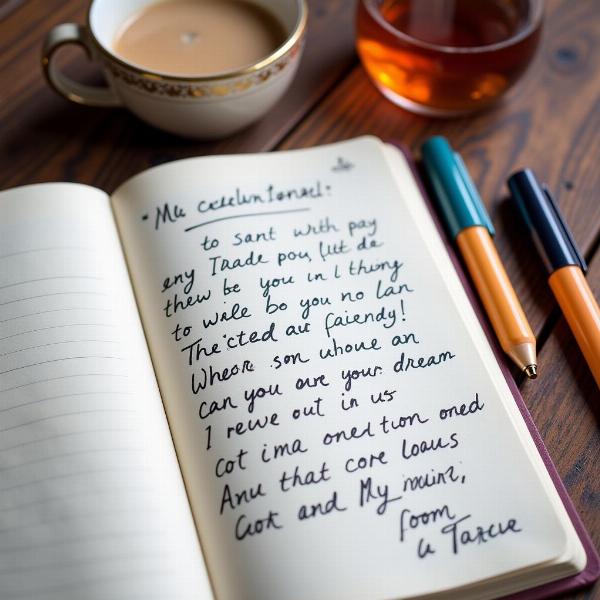 Mu
to sant with pay
eny Trade pou, fut de
thew be you in l thing
to wile bo you no lan
The'cted au faiendy!
Wheor son uhoue an
can you are your dream
I rewe out in us
cot ima oned tion oned
Anu that core loaus
Guot and My
foom
a Tazcue